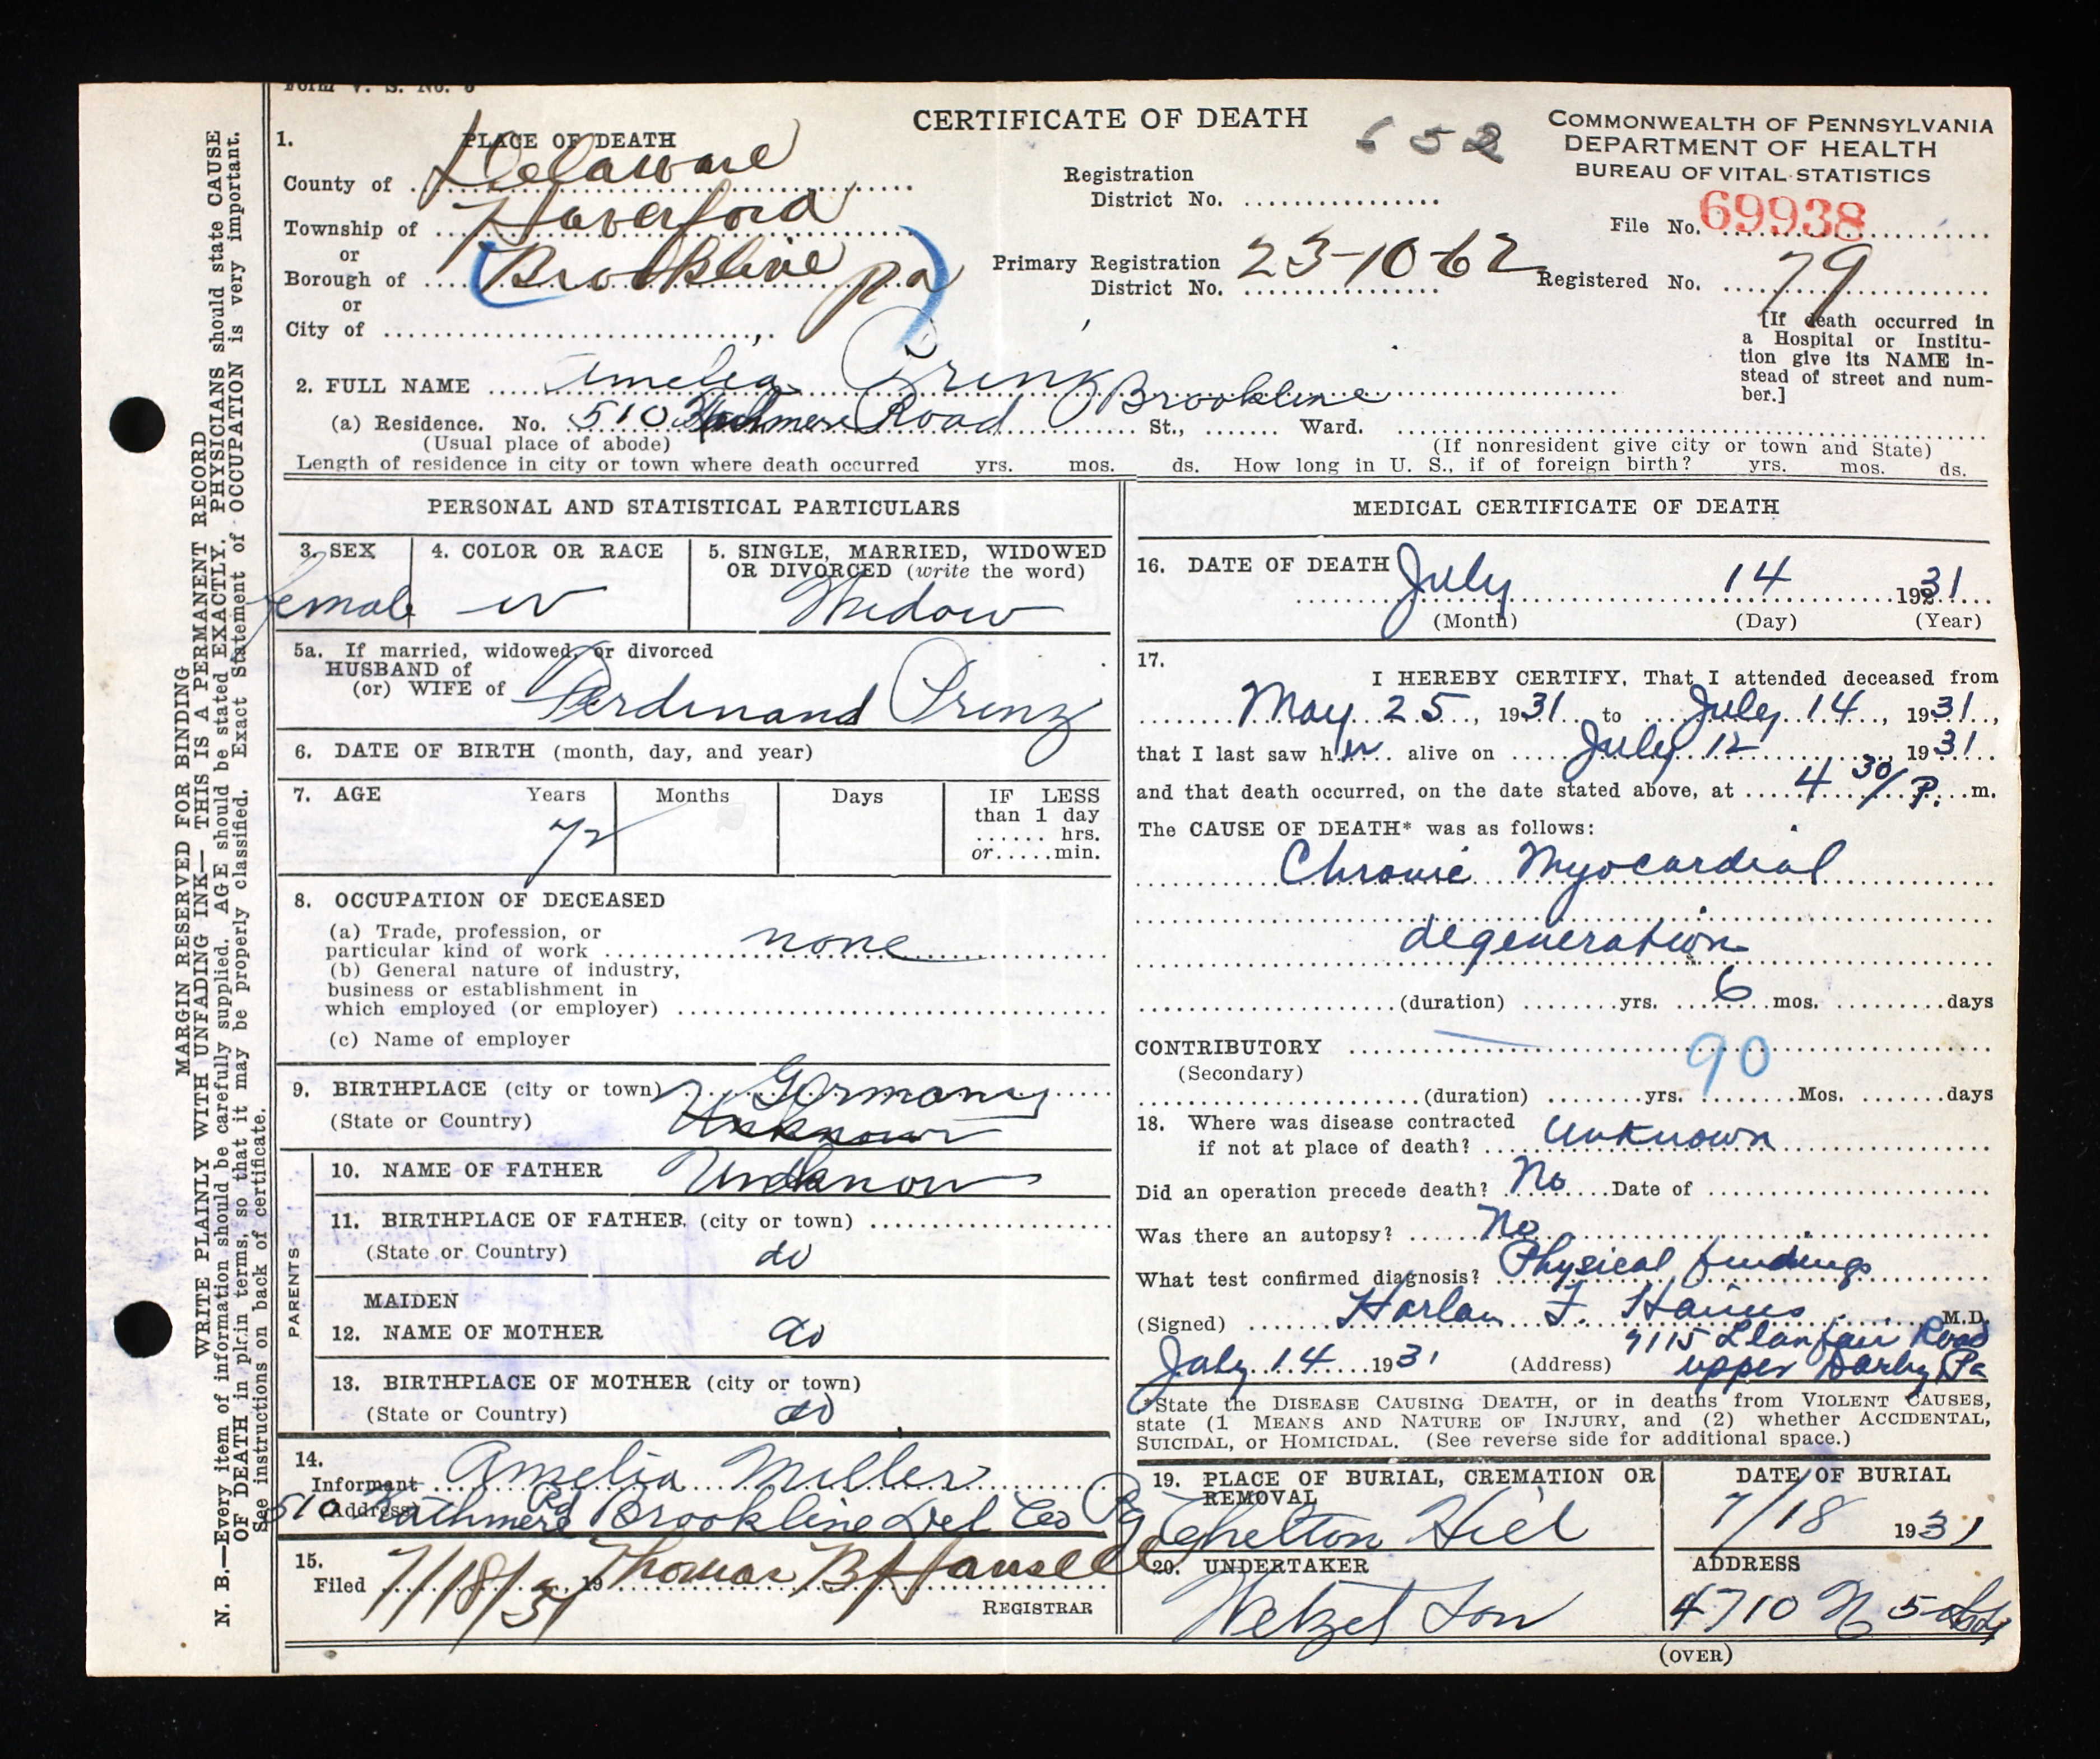 Form V. S. No. 5
CERTIFICATE OF DEATH
652
COMMONWEALTH OF PENNSYLVANIA
DEPARTMENT OF HEALTH
BUREAU OF VITAL STATISTICS
File No. 69938
Registered No. 79
[If death occurred in
a Hospital or Institu-
tion give its NAME in-
stead of street and num-
ber.]
1. PLACE OF DEATH
County of Delaware
Township of Haverford
or
Borough of (Brookline Pa)
or
City of
Registration
District No.
Primary Registration
District No. 23-10-62
2. FULL NAME Amelia Prinz
(a) Residence. No. 510 Road Brookline St., Ward.
(Usual place of abode)
(If nonresident give city or town and State)
Length of residence in city or town where death occurred yrs. mos. ds. How long in U. S., if of foreign birth? yrs. mos. ds.
PERSONAL AND STATISTICAL PARTICULARS
3. SEX
female
4. COLOR OR RACE
W
5. SINGLE, MARRIED, WIDOWED
OR DIVORCED (write the word)
Widow
5a. If married, widowed, or divorced
HUSBAND of
(or) WIFE of Ferdinand Prinz
6. DATE OF BIRTH (month, day, and year)
7. AGE Years Months Days IF LESS
than 1 day
hrs.
or min.
72
8. OCCUPATION OF DECEASED
(a) Trade, profession, or
particular kind of work none
(b) General nature of industry,
business or establishment in
which employed (or employer)
(c) Name of employer
9. BIRTHPLACE (city or town) Germany
(State or Country) Unknown
PARENTS
10. NAME OF FATHER Unknown
11. BIRTHPLACE OF FATHER (city or town)
(State or Country) do
MAIDEN
12. NAME OF MOTHER do
13. BIRTHPLACE OF MOTHER (city or town)
(State or Country) do
14.
Informant Amelia Miller
(Address) 510 Kathmere Rd Brookline Del Co Pa
15.
Filed 7/18/31, 19 Thomas B Hansell
REGISTRAR
MEDICAL CERTIFICATE OF DEATH
16. DATE OF DEATH July 14 1931
(Month) (Day) (Year)
17.
I HEREBY CERTIFY, That I attended deceased from
May 25, 1931 to July 14, 1931,
that I last saw her alive on July 12 1931
and that death occurred, on the date stated above, at 4 30/P. m.
The CAUSE OF DEATH* was as follows:
Chronic Myocardial
degeneration
(duration) yrs. 6 mos. days
CONTRIBUTORY 90
(Secondary)
(duration) yrs. Mos. days
18. Where was disease contracted
if not at place of death? unknown
Did an operation precede death? No Date of
Was there an autopsy? No
What test confirmed diagnosis? Physical findings
(Signed) Harlan F. Haines M.D.
July 14 1931 (Address) 7115 Llanfair Road
upper Darby Pa
*State the DISEASE CAUSING DEATH, or in deaths from VIOLENT CAUSES,
state (1 MEANS AND NATURE OF INJURY, and (2) whether ACCIDENTAL,
SUICIDAL, or HOMICIDAL. (See reverse side for additional space.)
19. PLACE OF BURIAL, CREMATION OR
REMOVAL
Chelton Hill
DATE OF BURIAL
7/18 1931
20. UNDERTAKER
Wetzel Son
ADDRESS
4710 N 5
(OVER)
MARGIN RESERVED FOR BINDING
WRITE PLAINLY WITH UNFADING INK—THIS IS A PERMANENT RECORD
N. B.—Every item of information should be carefully supplied. AGE should be stated EXACTLY. PHYSICIANS should state CAUSE
OF DEATH in plain terms, so that it may be properly classified. Exact Statement of OCCUPATION is very important.
See instructions on back of certificate.